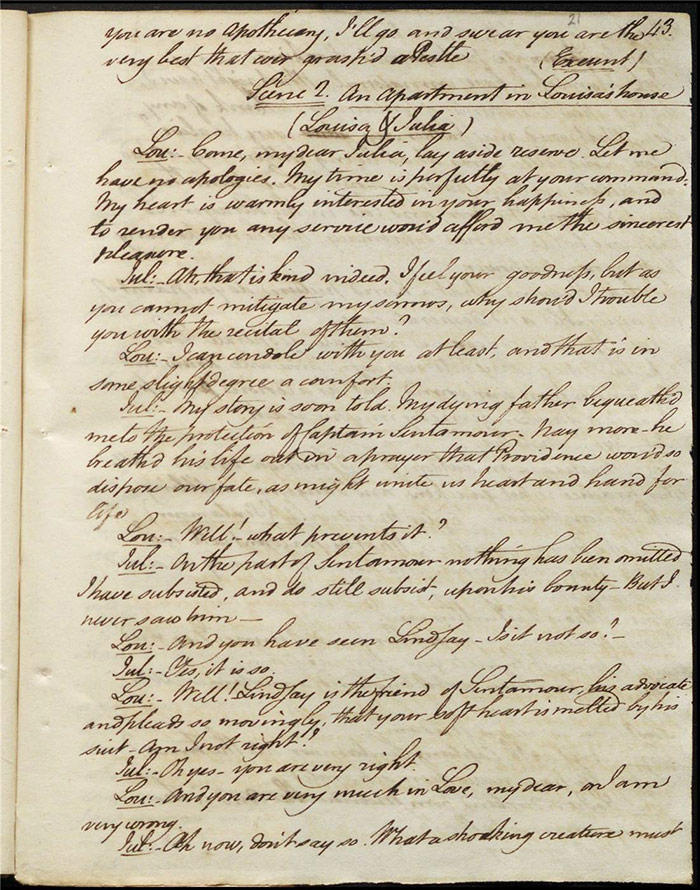 21
you are no Apothecary, I'll go and swear you are the 43.
very best that ever grasp'd a Pestle (Exeunt)
Scene 2. An apartment in Louisa's house
(Louisa & Julia)
Lou:- Come, my dear Julia, lay aside reserve. Let me
have no apologies. My time is perfectly at your command.
My heart is warmly interested in your happiness, and
to render you any service would afford me the sincerest
pleasure.
Jul:- Ah, that is kind indeed. I feel your goodness, but as
you cannot mitigate my sorrows, why should I trouble
you with the recital of them?
Lou:- I can condole with you at least, and that is in
some slight degree a comfort.
Jul:- My story is soon told. My dying father bequeath'd
me to the protection of Captain Sentamour. Nay more - he
breath'd his life out in a prayer that Providence would so
dispose our fate, as might unite us heart and hand for
life
Lou:- Well! - what prevents it?
Jul:- On the part of Sentamour nothing has been omitted
I have subsisted, and do still subsist, upon his bounty - But I
never saw him -
Lou:- And you have seen Lindsay - Is it not so? -
Jul:- Yes, it is so.
Lou:- Well! Lindsay is the friend of Sentamour, his advocate
and pleads so movingly, that your soft heart is melted by his
suit - Am I not right?
Jul:- Oh yes - you are very right.
Lou:- And you are very much in Love, my dear, or I am
very wrong.
Jul:- Ah now, don't say so. What a shocking creature must